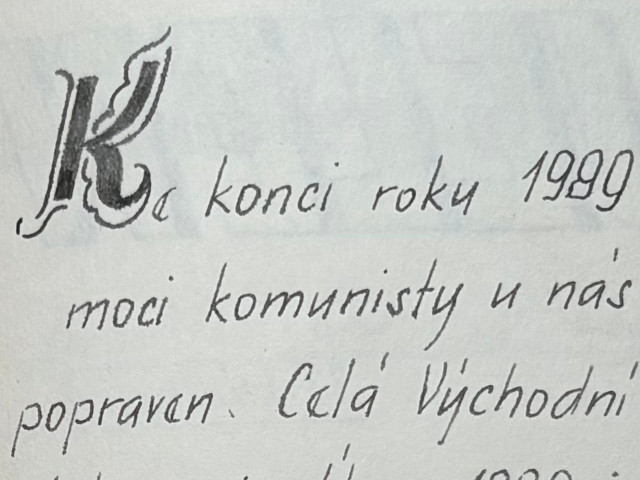 Ke konci roku 1989
moci komunisty u nás
popraven. Celá Východní